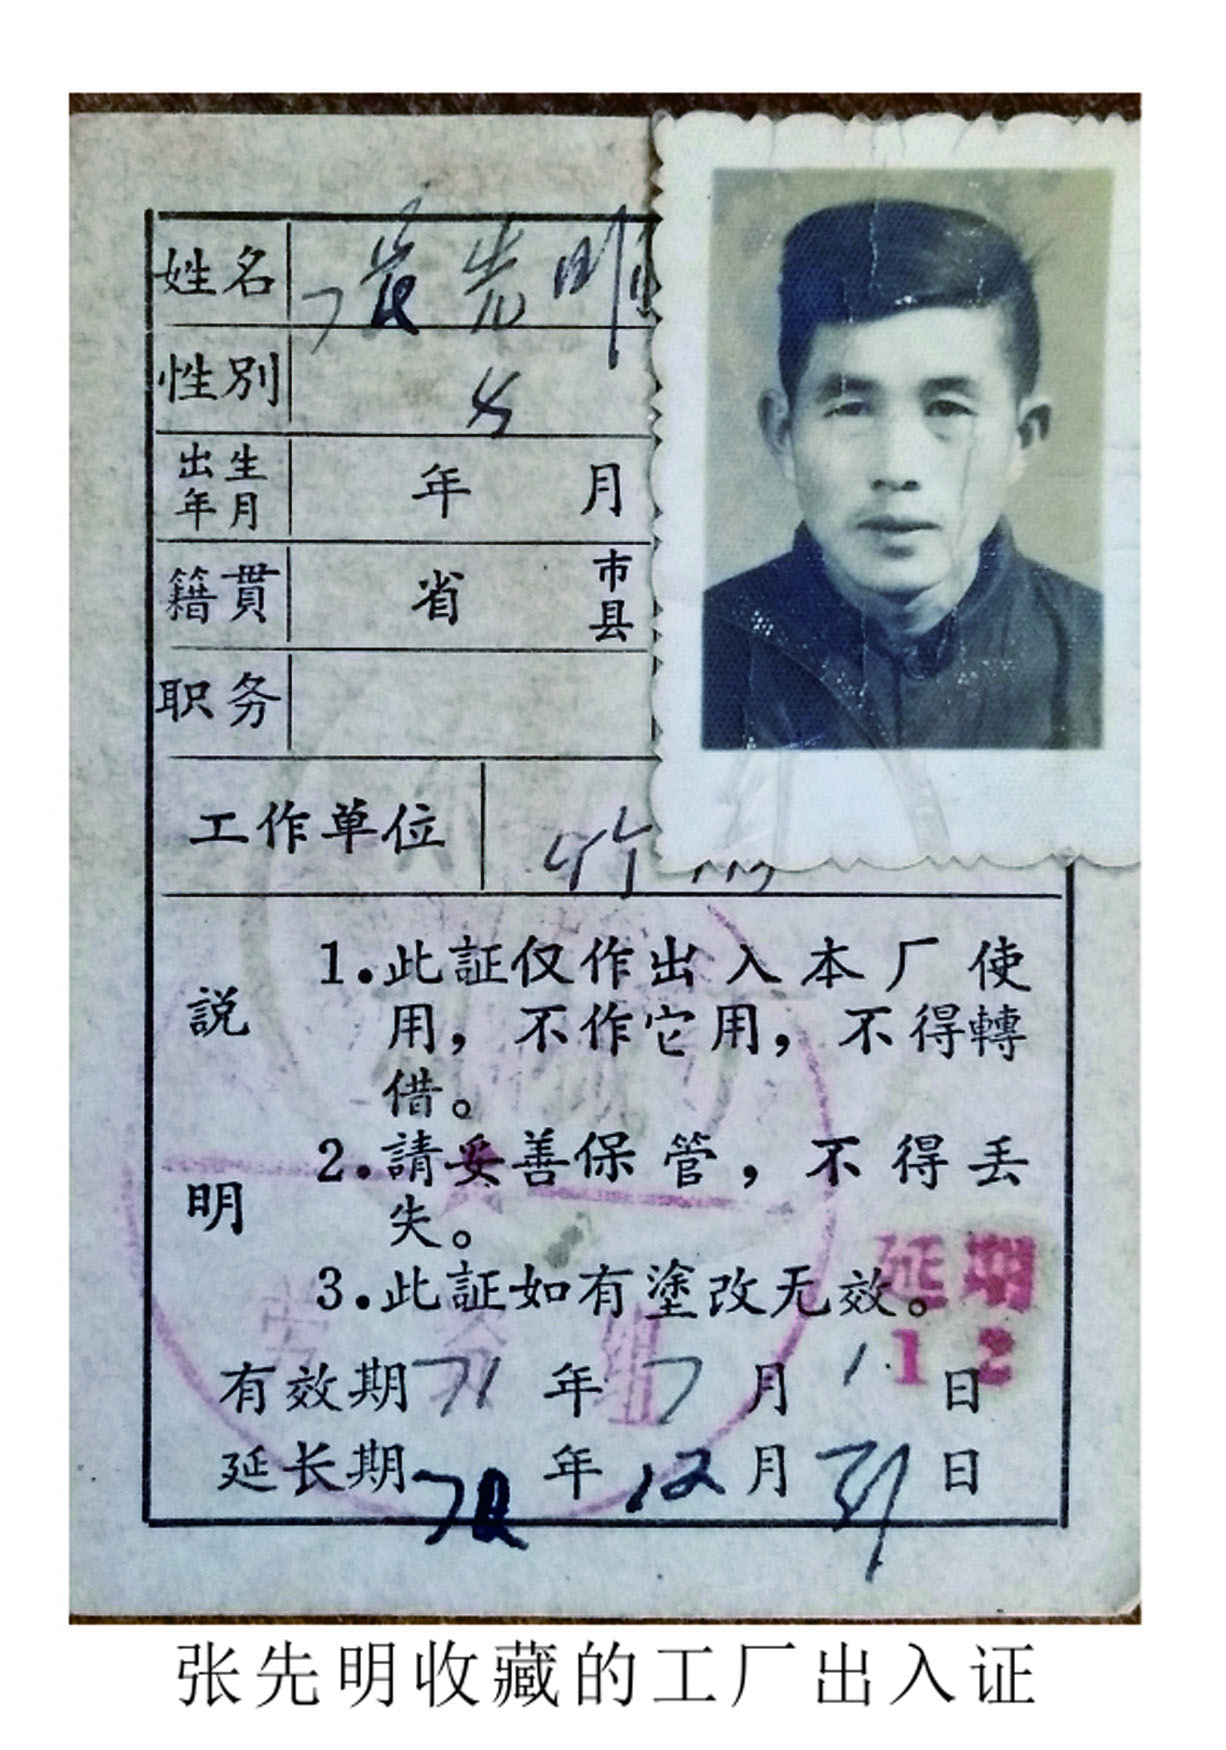 姓名 张先明
性别 男
出生年月 年 月
籍貫 省 市县
职务
工作单位 竹
説明
1.此証仅作出入本厂使
用，不作它用，不得轉
借。
2.請妥善保管，不得丢
失。
3.此証如有塗改无效。
延期
12
有效期71年7月1日
延长期72年12月31日
劳务组
张先明收藏的工厂出入证